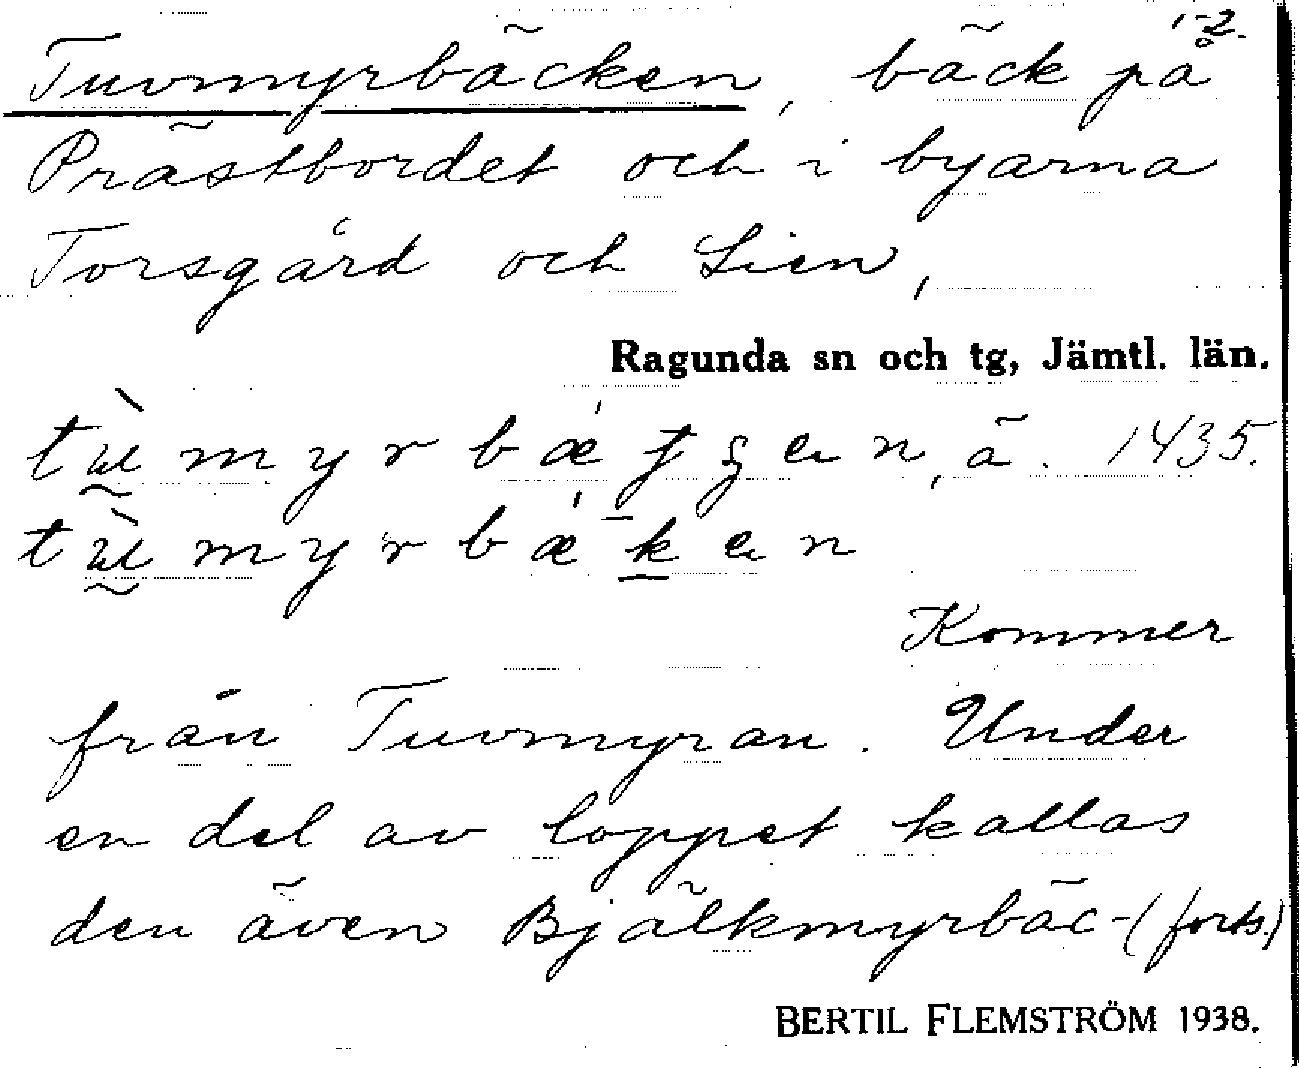 1-2.
Tuvmyrbäcken, bäck på
Prästbordet och i byarna
Torsgård och Lien,
Ragunda sn och tg, Jämtl. län.
ä. 1435.
Kommer
från Tuvmyran. Under
en del av loppet kallas
den även Bjälkmyrbäc- (forts.)
BERTIL FLEMSTRÖM 1938.